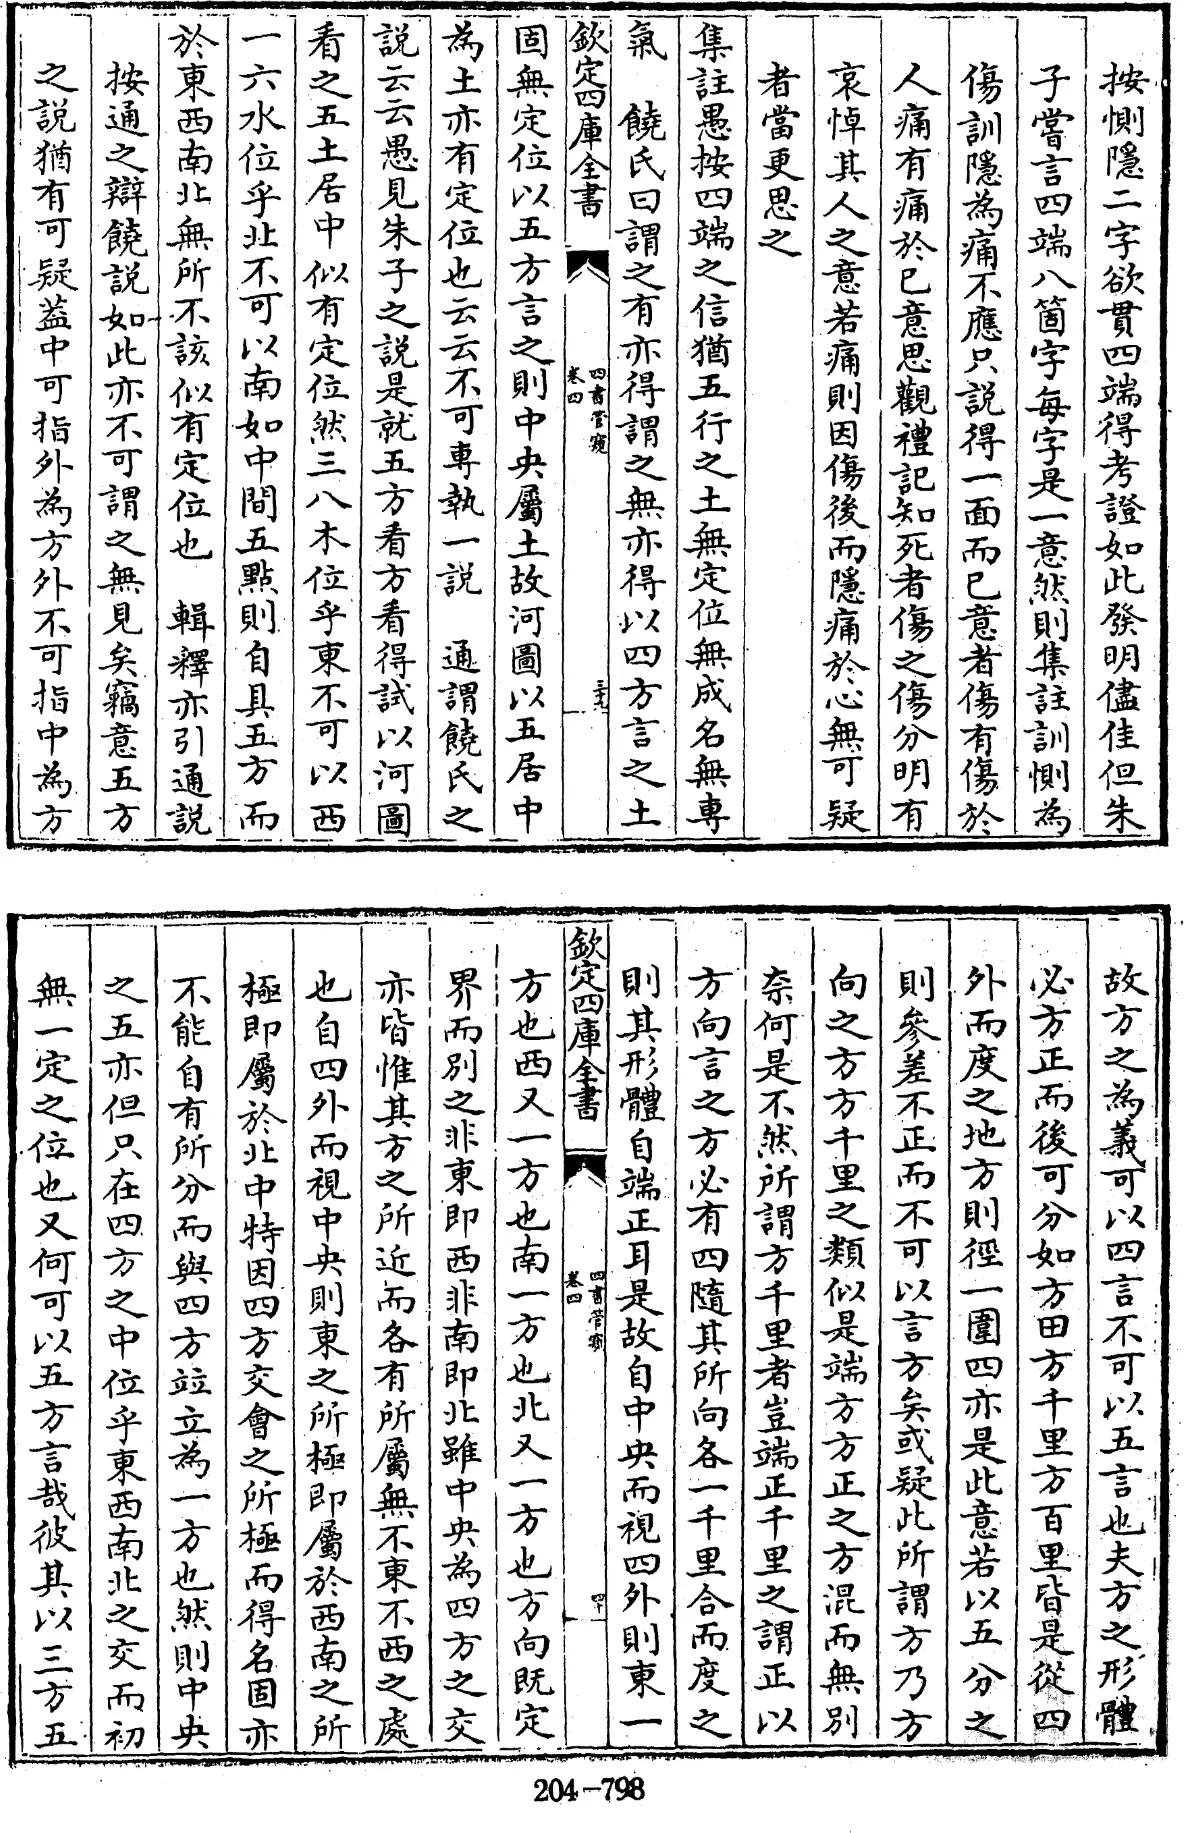 按惻隱二字欲貫四端得考證如此發明儘佳但朱
子嘗言四端八箇字每字是一意然則集註訓惻為
傷訓隱為痛不應只説得一面而已意者傷有傷於
人痛有痛於已意思觀禮記知死者傷之傷分明有
哀悼其人之意若痛則因傷後而隱痛於心無可疑
者當更思之
集註愚按四端之信猶五行之土無定位無成名無專
氣　饒氏曰謂之有亦得謂之無亦得以四方言之土
欽定四庫全書
四書管窺
卷四
三十九
固無定位以五方言之則中央屬土故河圖以五居中
為土亦有定位也云云不可專執一説　通謂饒氏之
説云云愚見朱子之説是就五方看方看得試以河圖
看之五土居中似有定位然三八木位乎東不可以西
一六水位乎北不可以南如中間五點則自具五方而
於東西南北無所不該似有定位也　輯釋亦引通説
按通之辯饒説如此亦不可謂之無見矣竊意五方
之説猶有可疑葢中可指外為方外不可指中為方
故方之為義可以四言不可以五言也夫方之形體
必方正而後可分如方田方千里方百里皆是從四
外而度之地方則徑一圍四亦是此意若以五分之
則參差不正而不可以言方矣或疑此所謂方乃方
向之方方千里之類似是端方方正之方混而無别
奈何是不然所謂方千里者豈端正千里之謂正以
方向言之方必有四隨其所向各一千里合而度之
則其形體自端正耳是故自中央而視四外則東一
欽定四庫全書
四書管窺
卷四
四十
方也西又一方也南一方也北又一方也方向既定
界而别之非東即西非南即北雖中央為四方之交
亦皆惟其方之所近而各有所屬無不東不西之處
也自四外而視中央則東之所極即屬於西南之所
極即屬於北中特因四方交會之所極而得名固亦
不能自有所分而與四方竝立為一方也然則中央
之五亦但只在四方之中位乎東西南北之交而初
無一定之位也又何可以五方言哉彼其以三方五
204-798